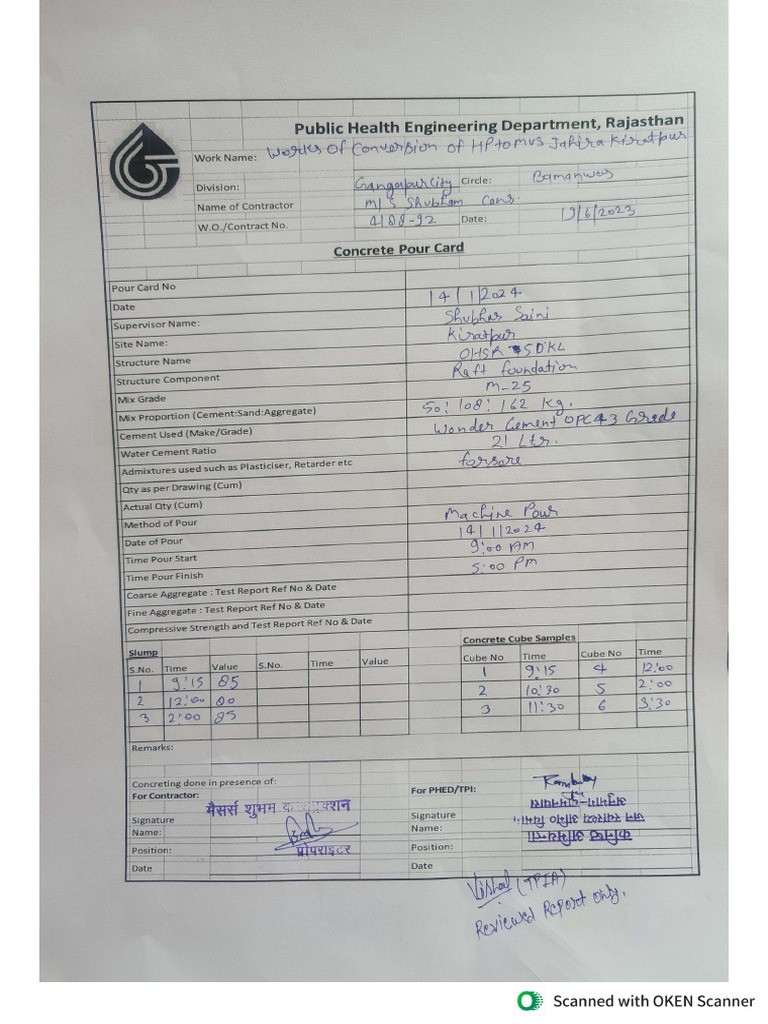 Public Health Engineering Department, Rajasthan
Work Name: Works Of Conversion of HP to MVS Jahira Kiratpur
Division: Gangapur City Circle: Bamanwas
Name of Contractor M/S Shubham Cons.
W.O./Contract No. 4188-92 Date: 19/6/2023
Concrete Pour Card
Pour Card No
Date 14/1/2024
Supervisor Name: Shubham Saini
Site Name: Kiratpur
Structure Name OHSR 50KL
Structure Component Raft foundation
Mix Grade M-25
Mix Proportion (Cement:Sand:Aggregate) 50: 108: 162 Kg.
Cement Used (Make/Grade) Wonder Cement OPC 43 Grade
Water Cement Ratio 21 Ltr.
Admixtures used such as Plasticiser, Retarder etc
Qty as per Drawing (Cum)
Actual Qty (Cum)
Method of Pour Machine Pour
Date of Pour 14/1/2024
Time Pour Start 9:00 AM
Time Pour Finish 5:00 PM
Coarse Aggregate : Test Report Ref No & Date
Fine Aggregate : Test Report Ref No & Date
Compressive Strength and Test Report Ref No & Date
Slump Concrete Cube Samples
S.No. Time Value S.No. Time Value Cube No Time Cube No Time
1 9:15 85 1 9:15 4 12:00
2 12:00 80 2 10:30 5 2:00
3 2:00 85 3 11:30 6 3:30
Remarks:
Concreting done in presence of:
For Contractor: For PHED/TPI:
मैसर्स शुभम
Signature Signature
Name: Name:
Position: प्रोपराइटर Position:
Date Date
कनिष्ठ अभियन्ता
जन स्वास्थ्य अभि० विभाग
Vishal (TPIA)
Reviewed Report only.
Scanned with OKEN Scanner